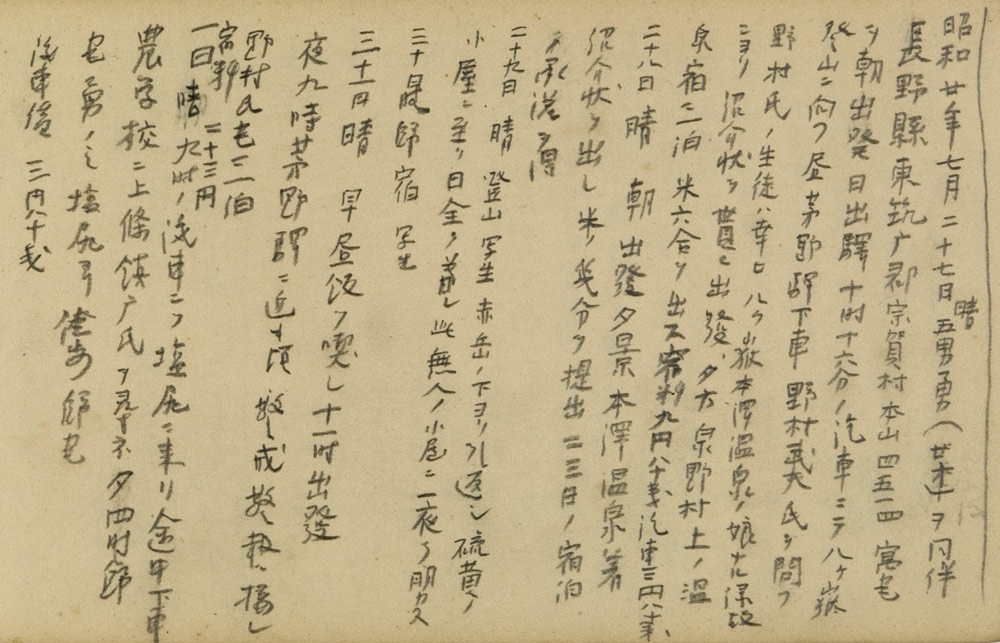 昭和廿年七月二十七日 晴 五男勇(廿才)ヲ同伴
長野縣東筑广郡宗賀村本山四五一四寓宅
ヲ朝出発日出驛十时十六分ノ汽車ニテ八ヶ嶽
登山ニ向フ昼茅野駅下車野村義夫氏ヲ問フ
野村氏ノ生徒ハ幸ロ八ヶ嶽本澤温泉ノ娘ナル
ニヨリ紹介状ヲ貰ヒ出發、夕方泉野村上ノ温
泉宿ニ泊 米六合ヲ出ス宿料九円八十戋汽車三円八十戋
二十八日 晴 朝 出發夕景本澤温泉着
紹介状ヲ出し米ノ残分ヲ提出二三日ノ宿泊
ヲ承諾ヲ得
二十九日 晴 登山写生赤岳ノ下ヨリ引返シ硫黄ノ
小屋ニ至リ日全ク暮レ此無人ノ小屋ニ一夜ヲ明カス
三十日 晴 帰宿 写生
三十一日 晴 早昼飯ヲ喫し十一时出發
夜九時茅野駅ニ近キ頃警戒警報ニ接し
野村氏宅ニ泊
宿料二十三円
一日 晴 九时ノ汽車ニテ塩尻ニ来リ途中下車
農学校ニ上條鎮广氏ヲ尋ネ夕四时帰
宅勇ノミ塩尻ヨリ徒歩帰宅
汽車賃 三円八十戋